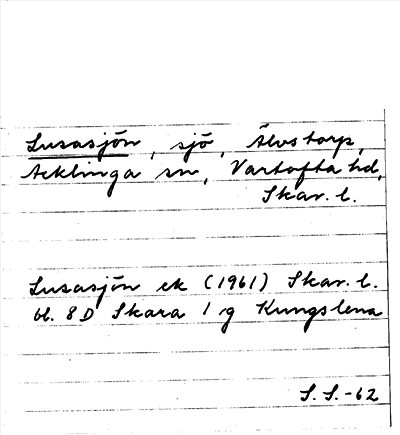 Lusasjön, sjö, Älvstorp,
Acklinga sn, Vartofta hd,
Skar. l.
Lusasjön ek (1961) Skar. l.
bl. 8D Skara 1 g Kungslena
S.S.-62